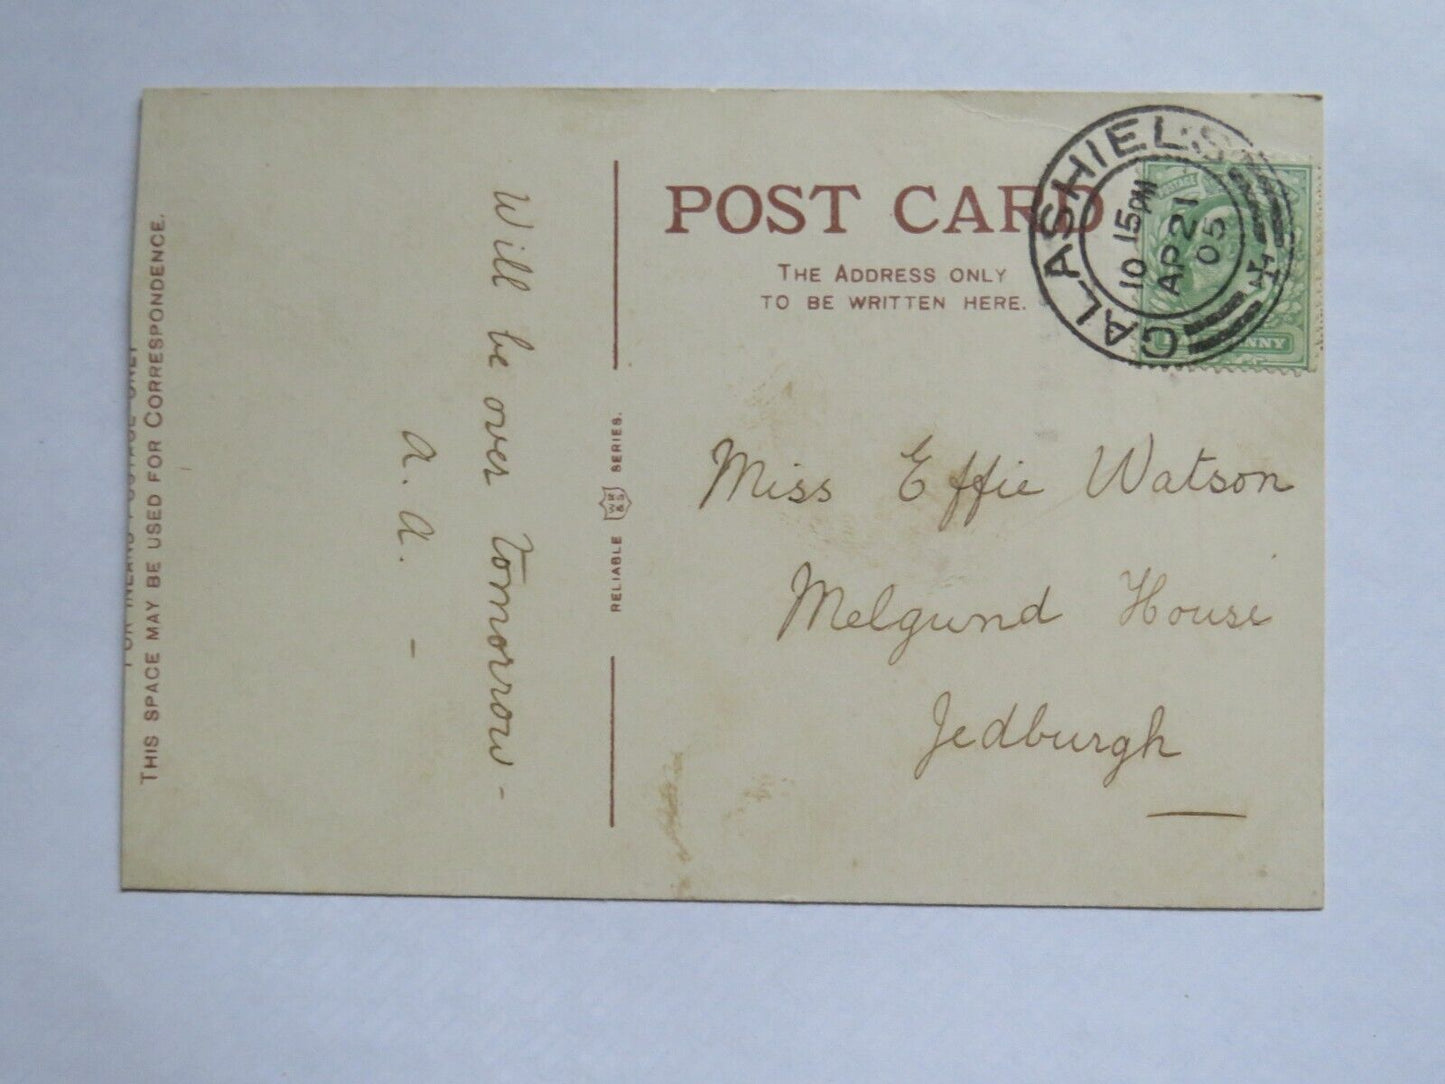 POST CARD
THE ADDRESS ONLY
TO BE WRITTEN HERE.
GALASHIELS
10 15PM
AP 21
05
POSTAGE
Miss Effie Watson
Melgund House
Jedburgh
Will be over tomorrow -
a. a. -
RELIABLE WR & S SERIES.
THIS SPACE MAY BE USED FOR CORRESPONDENCE.
FOR INLAND POSTAGE ONLY